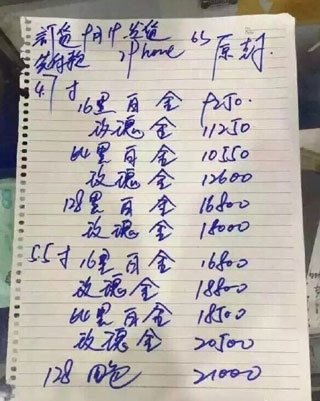 订货 9月19发货
全付款 iPhone 6S 原封.
4.7寸
16黑白金 9250.
玫瑰金 11250
64黑白金 10550
玫瑰金 12600
128黑白金 16800
玫瑰金 18000
5.5寸 16黑白金 16800
玫瑰金 18800
64黑白金 18500
玫瑰金 20500
128 四色 21000